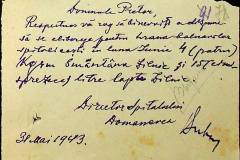 91
Domnule Pretor,
Respectuos vă rog să binevoiți a dispune
să se elibereze pentru hrana bolnavilor
spitalicești în luna Iunie 4 (patru)
Kgr. smântână zilnic și 15 (cinci
sprezece) litre lapte zilnic.
Director Spitalului
Domanovca
31 Mai 1943.